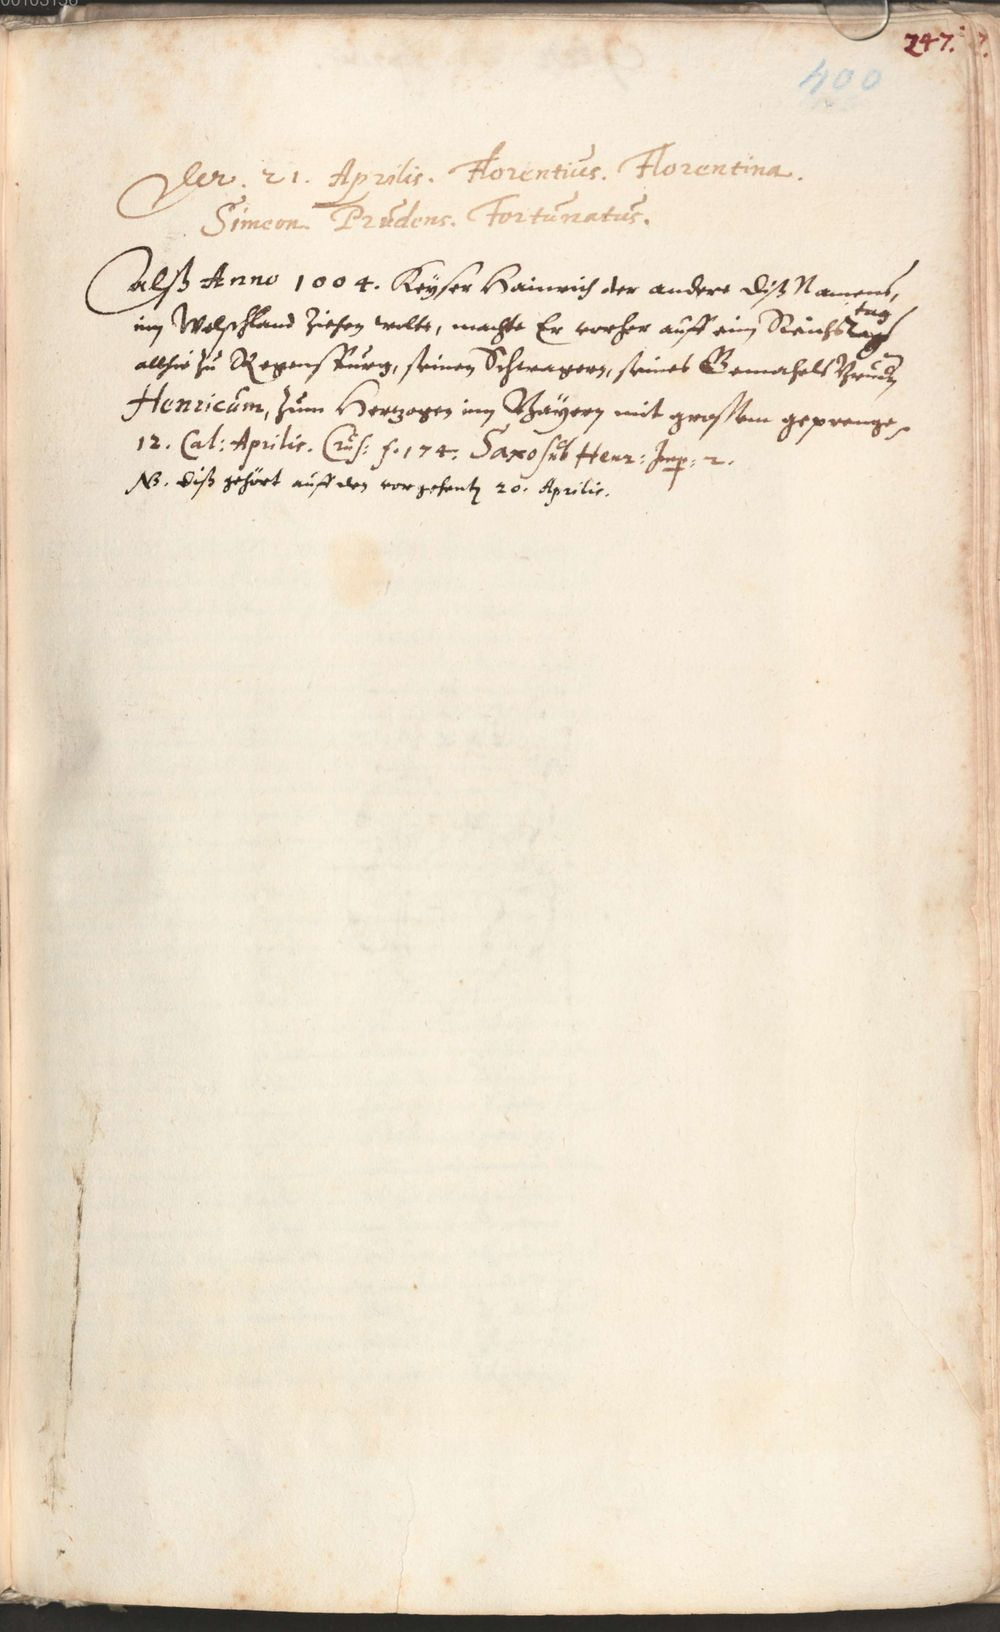 00103156
247.
400
Der. 21. Aprilis. Florentius. Florentina.
Simeon. Prudens. Fortunatus.
Alß Anno 1004. Keyser Hainrich der andere diß Namens,
inn Welschland ziehen wolte, machte Er vorher auff eim Reichstag
tag
allhie zu Regenspurg, seinen Schwagern, seines Gemahels Brudern
Henricum, zum Hertzogen inn Bayern mit grossem geprenge
12. Cal: Aprilis. Crus: f. 174. Saxo sub Henr: Imp: 2.
NB. diß gehört auff den vorgehenten 20. Aprilis.